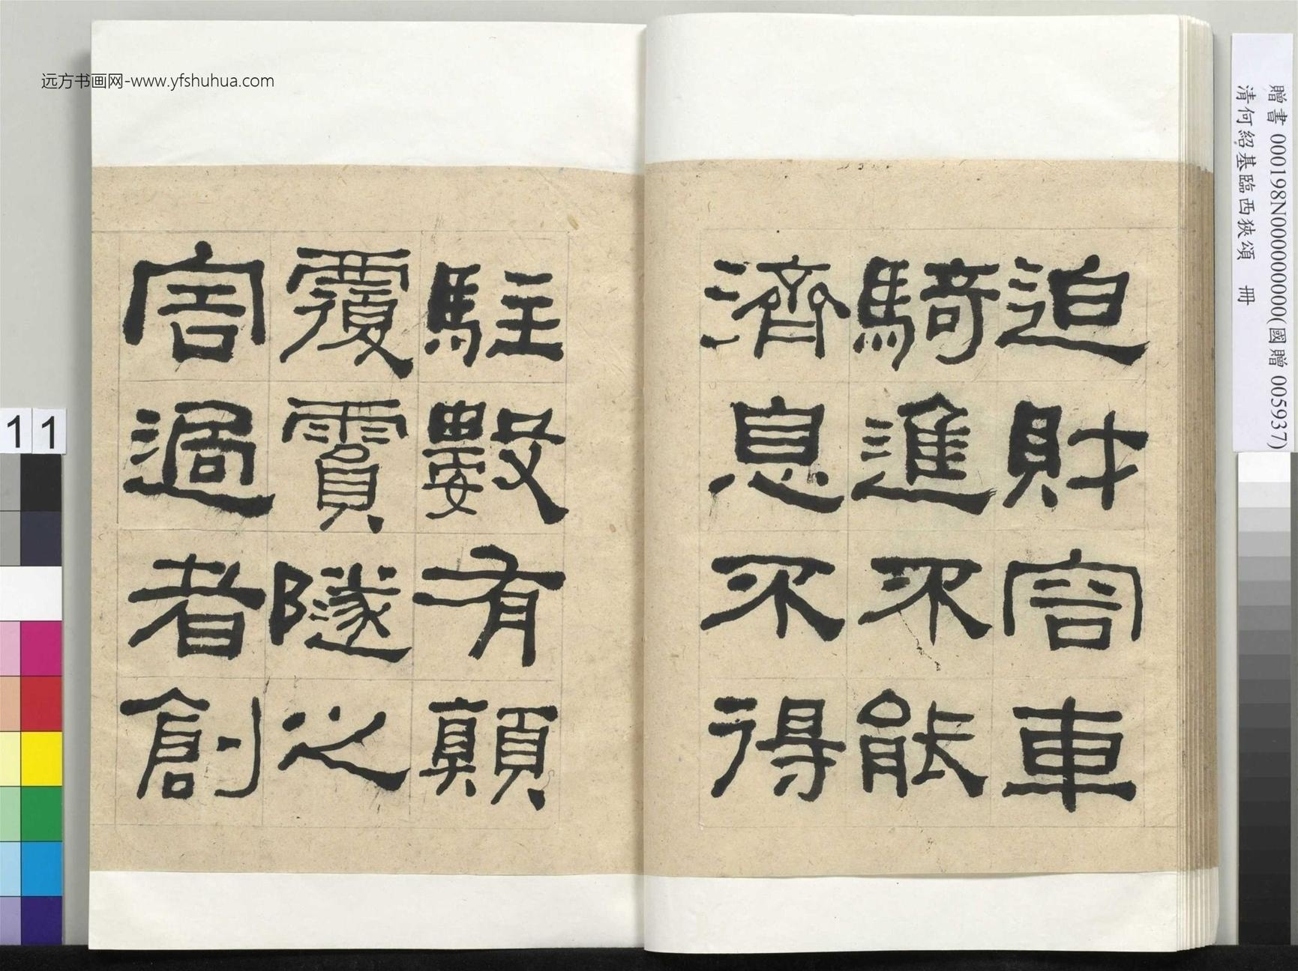 远方书画网-www.yfshuhua.com
迫財容車
騎進不能
濟息不得
駐數有顛
覆賈隧之
害過者創
贈書 000198N000000000(國贈 005937)
清何紹基臨西狹頌 冊
11